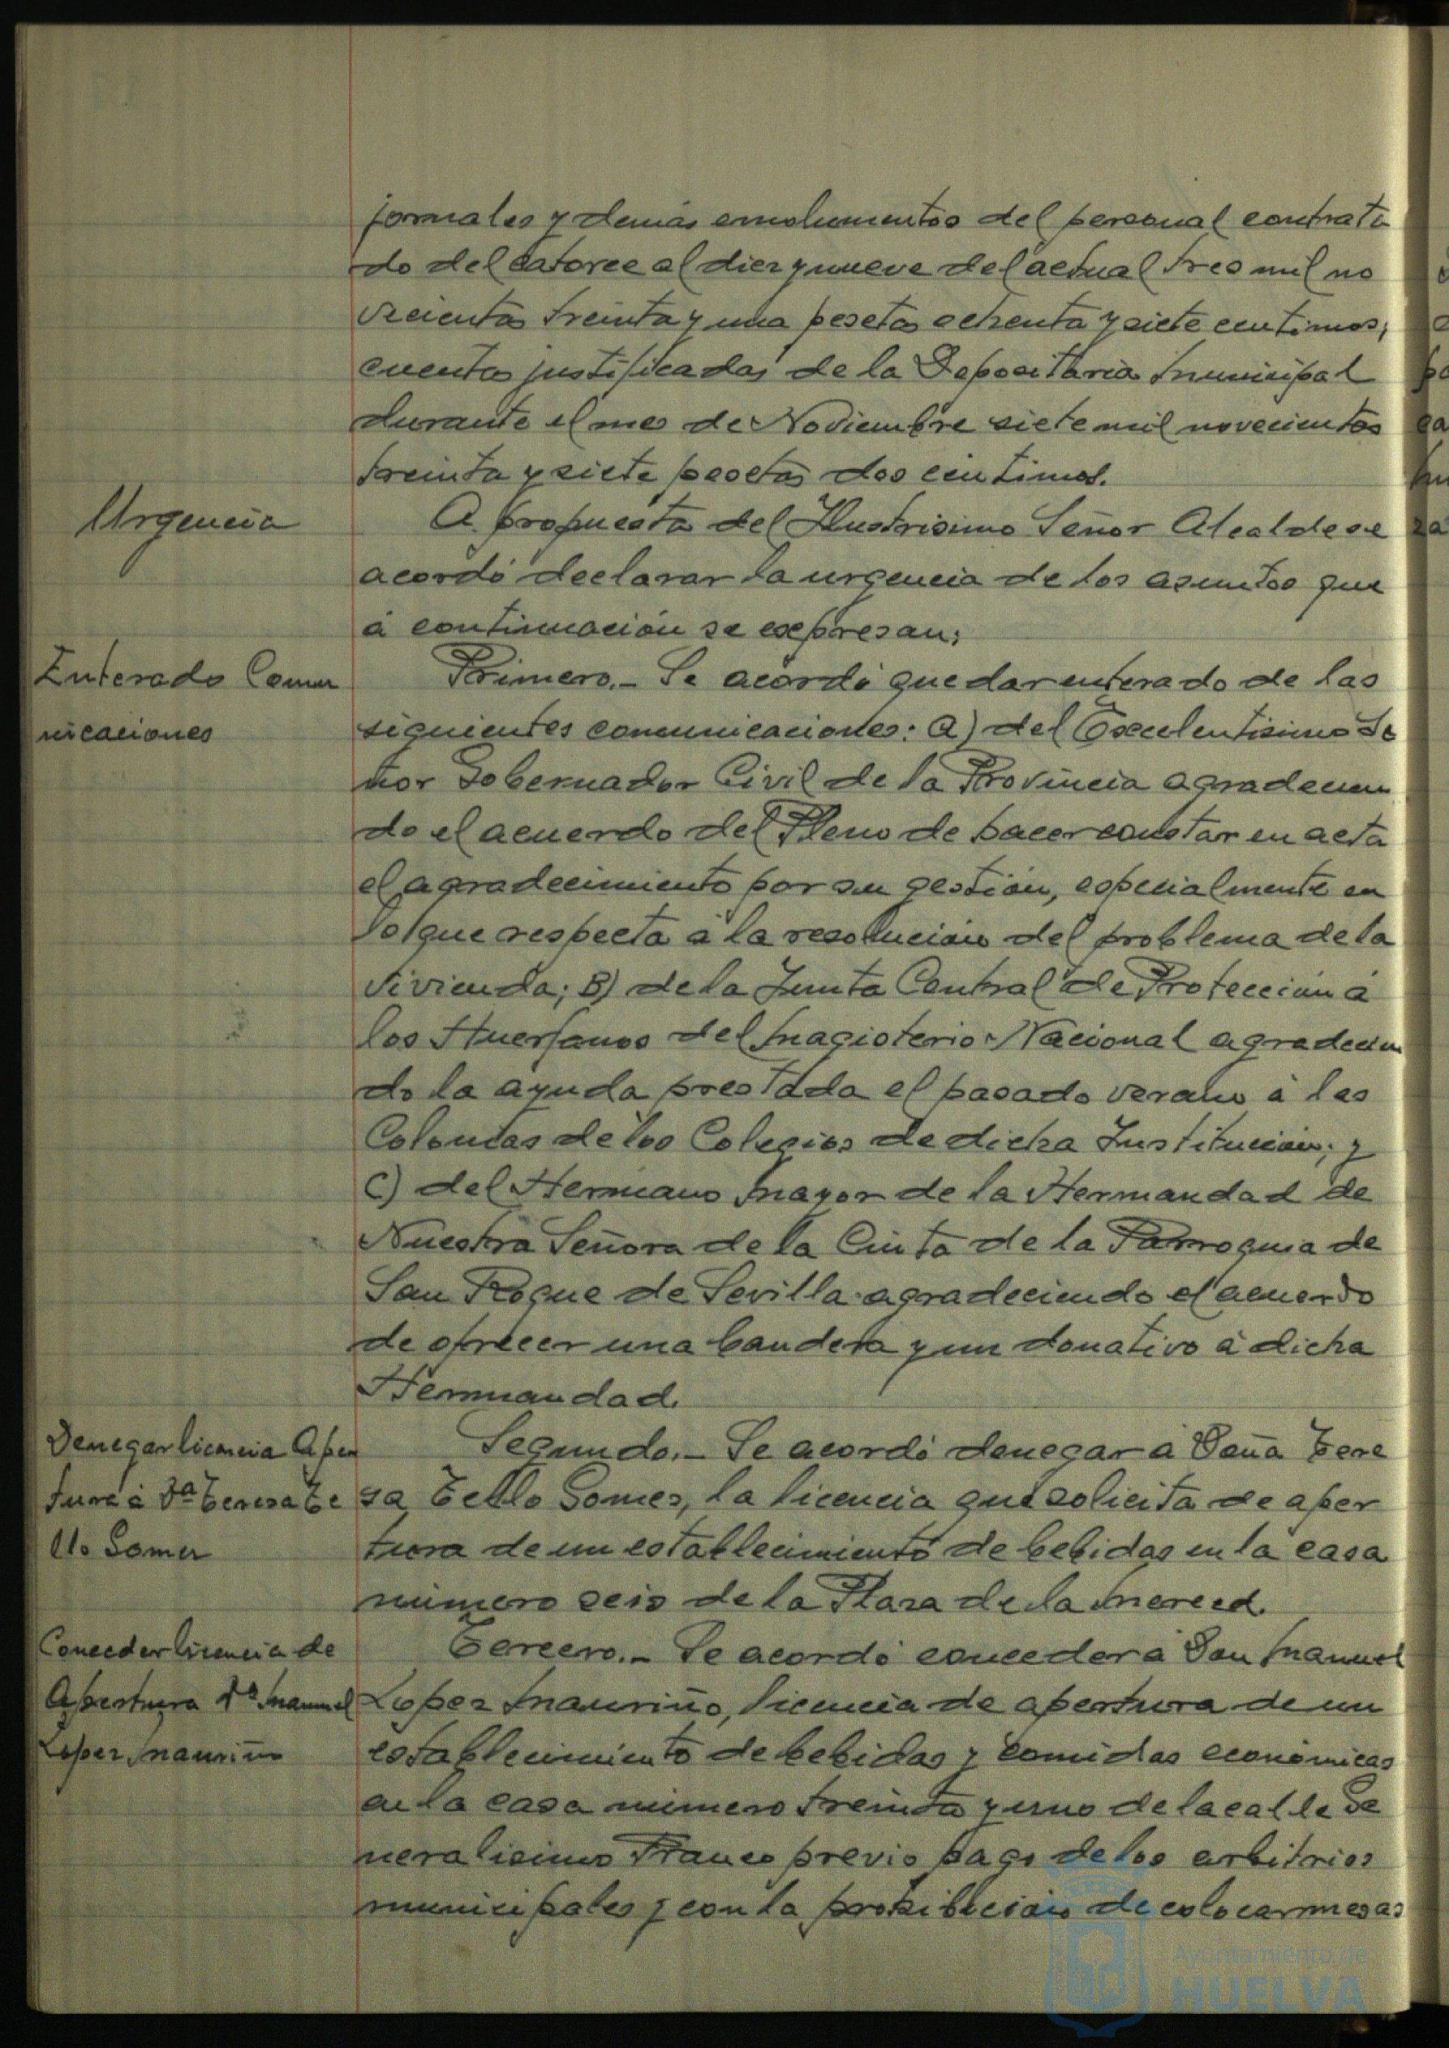 jornales y demás emolumentos del personal contrata
do del catorce al diez y nueve del actual tres mil no
vecientas treinta y una pesetas ochenta y siete centimos;
cuentas justificadas de la Depositaria Municipal
durante el mes de Noviembre siete mil novecientas
treinta y siete pesetas dos centimos.
Urgencia
A propuesta del Ilustrisimo Señor Alcalde se
acordó declarar la urgencia de los asuntos que
á continuación se expresan:
Enterado Comu
nicaciones
Primero.- Se acordó quedar enterado de las
siguientes comunicaciones: A) del Excelentisimo Se
ñor Gobernador Civil de la Provincia agradecien
do el acuerdo del Pleno de hacer constar en acta
el agradecimiento por su gestión, especialmente en
lo que respecta á la resolución del problema de la
vivienda; B) de la Junta Central de Protección á
los Huerfanos del Magisterio Nacional agradecien
do la ayuda prestada el pasado verano á las
Colonias de los Colegios de dicha Institución; y
C) del Hermano Mayor de la Hermandad de
Nuestra Señora de la Cinta de la Parroquia de
San Roque de Sevilla agradeciendo el acuerdo
de ofrecer una bandera y un donativo á dicha
Hermandad.
Denegar licencia Aper
tura á Dª Teresa Te
llo Gomez
Segundo.- Se acordó denegar á Doña Tere
sa Tello Gomez, la licencia que solicita de aper
tura de un establecimiento de bebidas en la casa
número seis de la Plaza de la Merced.
Conceder licencia de
Apertura Dº Manuel
Lopez Mauriño
Tercero.- Se acordó conceder á Don Manuel
Lopez Mauriño, licencia de apertura de un
establecimiento de bebidas y comidas económicas
en la casa número treinta y uno de la calle Ge
neralisimo Franco previo pago de los arbitrios
municipales y con la prohibición de colocar mesas
Ayuntamiento de
HUELVA